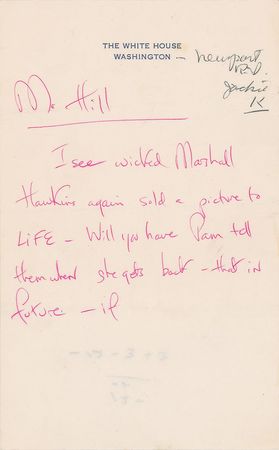 THE WHITE HOUSE
WASHINGTON —
Newport
R.I.
Jackie
K
Mr Hill
I see wicked Marshall
Hawkins again sold a picture to
LIFE – Will you have Pam tell
them when she gets back – that in
future – if